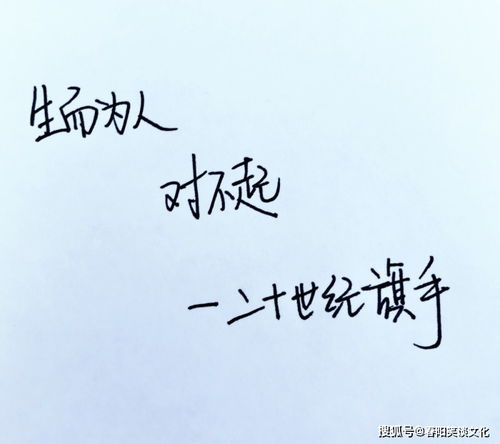 生而为人
对不起
一二十世纪旗手
搜狐号@春阳笑谈文化